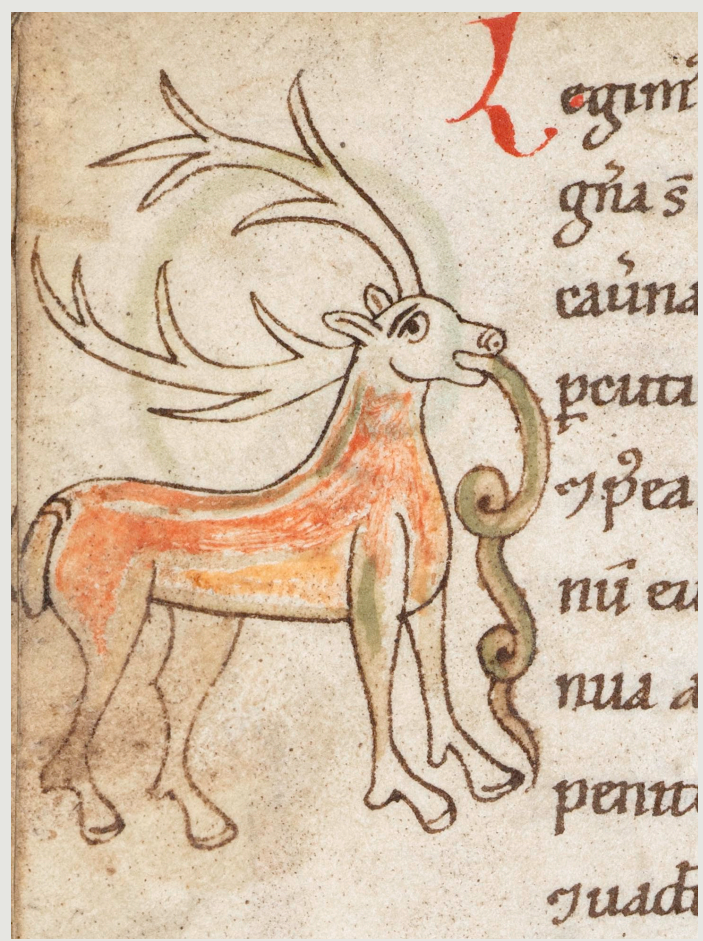 Legim̄
gn̄a s̄
cau̾na
ꝑcuti
⁊ p̾ea
nū eu
nua a
penite
⁊uadt